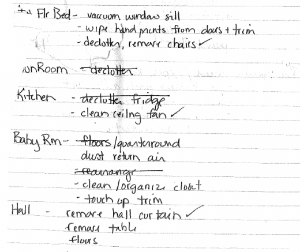 Flr Bed - vacuum window sill
- wipe hand prints from doors + trim
- declutter, remove chairs ✓
Room - declutter
Kitchen - declutter fridge
- clean ceilng fan ✓
Baby Rm - floors/quarter round
dust return air
- rearrange
- clean/organize closet
- touch up trim
Hall - remove hall curtain ✓
remove table
floors